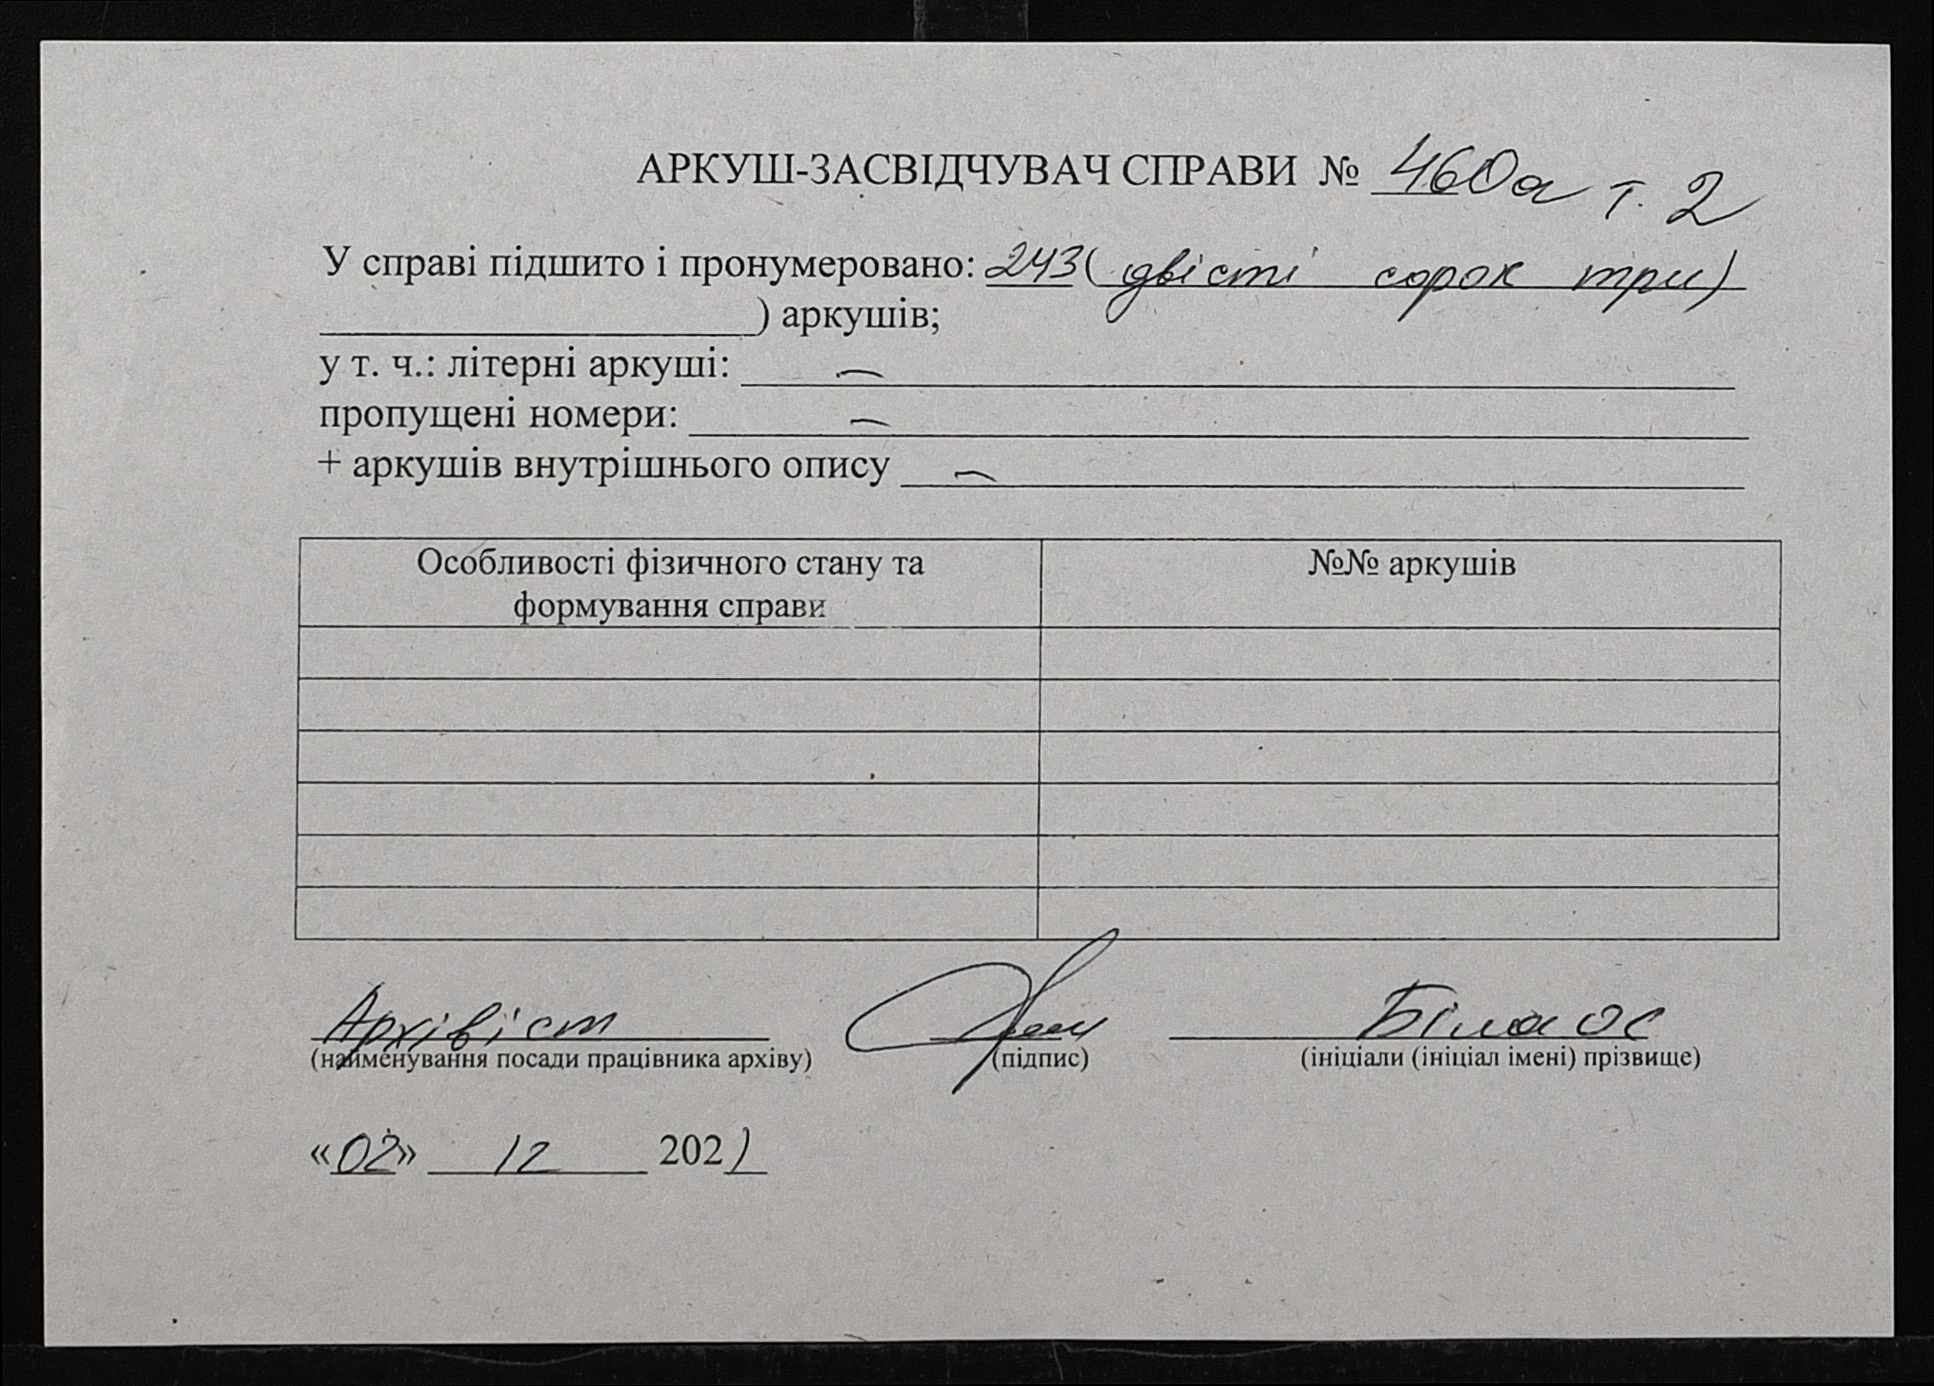 АРКУШ-ЗАСВІДЧУВАЧ СПРАВИ № 460а т. 2
У справі підшито і пронумеровано: 243 ( двісті сорок три)
) аркушів;
у т. ч.: літерні аркуші: —
пропущені номери: —
+ аркушів внутрішнього опису —
Особливості фізичного стану та формування справи
№№ аркушів
Архівіст Білаос
(найменування посади працівника архіву) (підпис) (ініціали (ініціал імені) прізвище)
«02» 12 2021